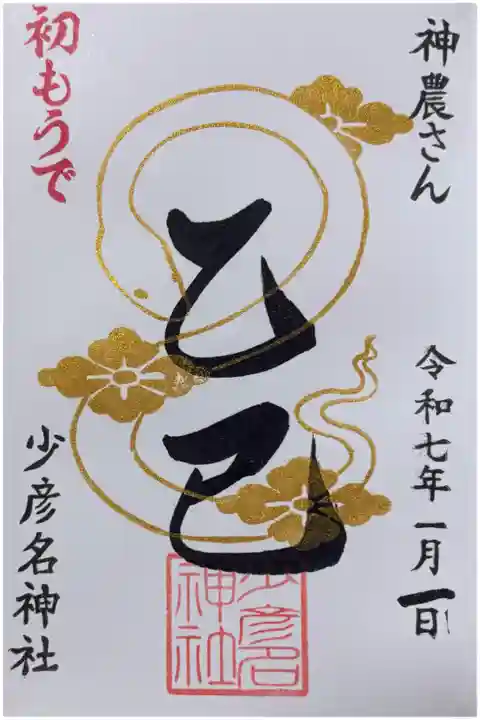 神農さん
令和七年一月一日
乙巳
少彦名
神社
初もうで
少彦名神社